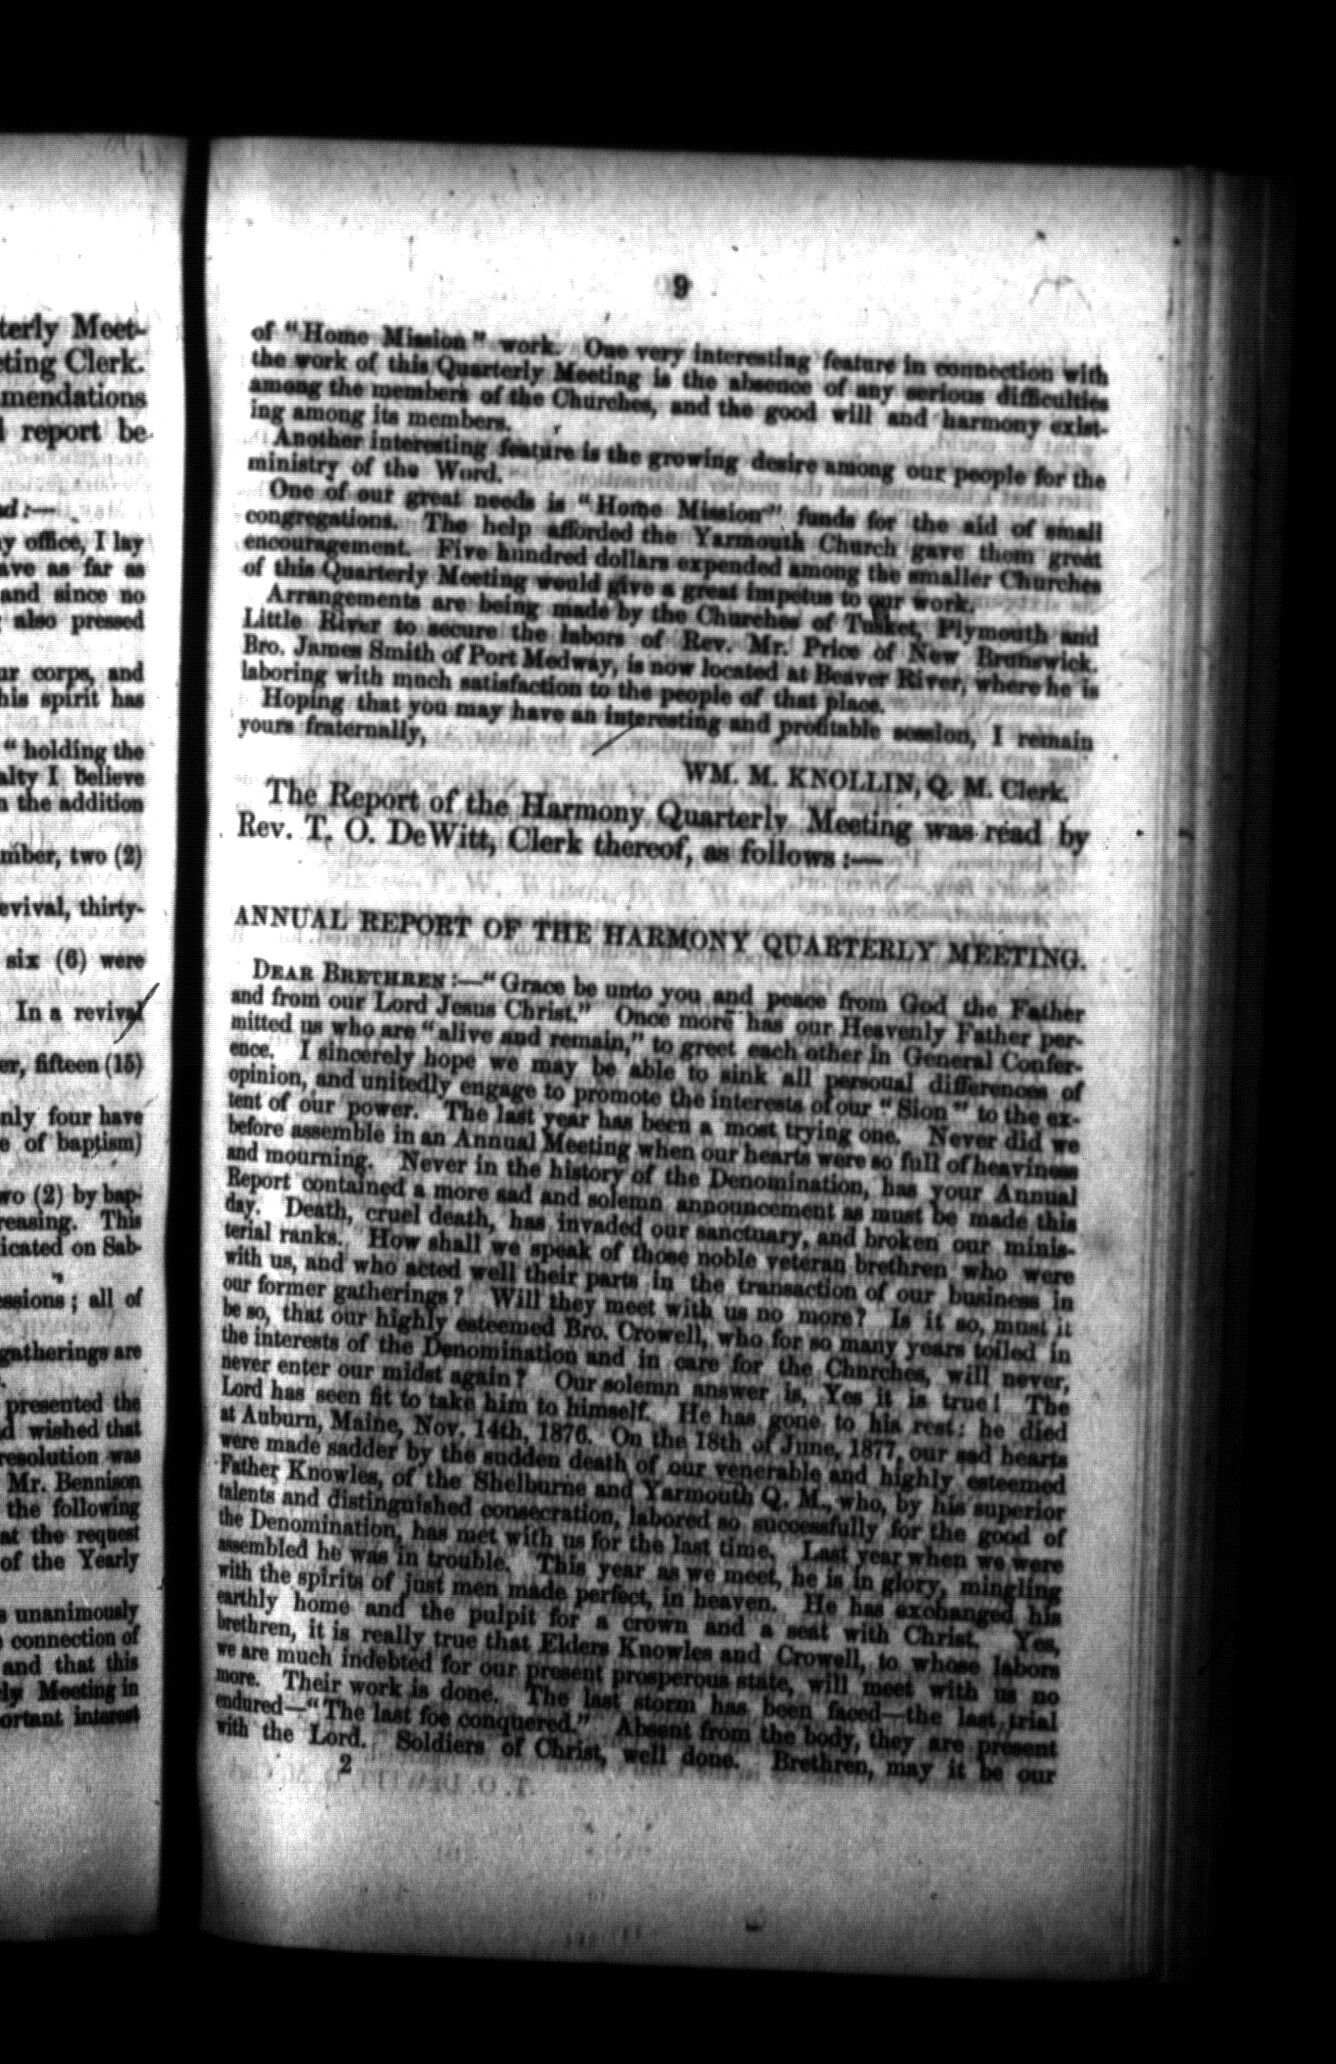 terly Meet-
ting Clerk.
mendations
report be
ad :—
y office, I lay
ave as far as
and since no
also pressed
ur corps, and
his spirit has
" holding the
alty I believe
n the addition
mber, two (2)
evival, thirty-
six (6) were
In a revival
er, fifteen (15)
nly four have
e of baptism)
wo (2) by bap-
reasing. This
icated on Sab-
essions ; all of
gatherings are
presented the
d wished that
resolution was
Mr. Bennison
the following
at the request
of the Yearly
s unanimously
connection of
and that this
ly Meeting in
ortant interest
9
of "Home Mission" work. One very interesting feature in connection with
the work of this Quarterly Meeting is the absence of any serious difficulties
among the members of the Churches, and the good will and harmony exist-
ing among its members.
Another interesting feature is the growing desire among our people for the
ministry of the Word.
One of our great needs is "Home Mission" funds for the aid of small
congregations. The help afforded the Yarmouth Church gave them great
encouragement. Five hundred dollars expended among the smaller Churches
of this Quarterly Meeting would give a great impetus to our work.
Arrangements are being made by the Churches of Tusket, Plymouth and
Little River to secure the labors of Rev. Mr. Price of New Brunswick.
Bro. James Smith of Port Medway, is now located at Beaver River, where he is
laboring with much satisfaction to the people of that place.
Hoping that you may have an interesting and profitable session, I remain
yours fraternally,
WM. M. KNOLLIN, Q. M. Clerk.
The Report of the Harmony Quarterly Meeting was read by
Rev. T. O. DeWitt, Clerk thereof, as follows :—
ANNUAL REPORT OF THE HARMONY QUARTERLY MEETING.
DEAR BRETHREN :—"Grace be unto you and peace from God the Father
and from our Lord Jesus Christ." Once more has our Heavenly Father per-
mitted us who are "alive and remain," to greet each other in General Confer-
ence. I sincerely hope we may be able to sink all personal differences of
opinion, and unitedly engage to promote the interests of our "Sion" to the ex-
tent of our power. The last year has been a most trying one. Never did we
before assemble in an Annual Meeting when our hearts were so full of heaviness
and mourning. Never in the history of the Denomination, has your Annual
Report contained a more sad and solemn announcement as must be made this
day. Death, cruel death, has invaded our sanctuary, and broken our minis-
terial ranks. How shall we speak of those noble veteran brethren who were
with us, and who acted well their parts in the transaction of our business in
our former gatherings? Will they meet with us no more? Is it so, must it
be so, that our highly esteemed Bro. Crowell, who for so many years toiled in
the interests of the Denomination and in care for the Churches, will never,
never enter our midst again? Our solemn answer is, Yes it is true! The
Lord has seen fit to take him to himself. He has gone to his rest: he died
at Auburn, Maine, Nov. 14th, 1876. On the 18th of June, 1877, our sad hearts
were made sadder by the sudden death of our venerable and highly esteemed
Father Knowles, of the Shelburne and Yarmouth Q. M., who, by his superior
talents and distinguished consecration, labored so successfully for the good of
the Denomination, has met with us for the last time. Last year when we were
assembled he was in trouble. This year as we meet, he is in glory, mingling
with the spirits of just men made perfect, in heaven. He has exchanged his
earthly home and the pulpit for a crown and a seat with Christ. Yes,
brethren, it is really true that Elders Knowles and Crowell, to whose labors
we are much indebted for our present prosperous state, will meet with us no
more. Their work is done. The last storm has been faced—the last trial
endured—"The last foe conquered." Absent from the body, they are present
with the Lord. Soldiers of Christ, well done. Brethren, may it be our
2